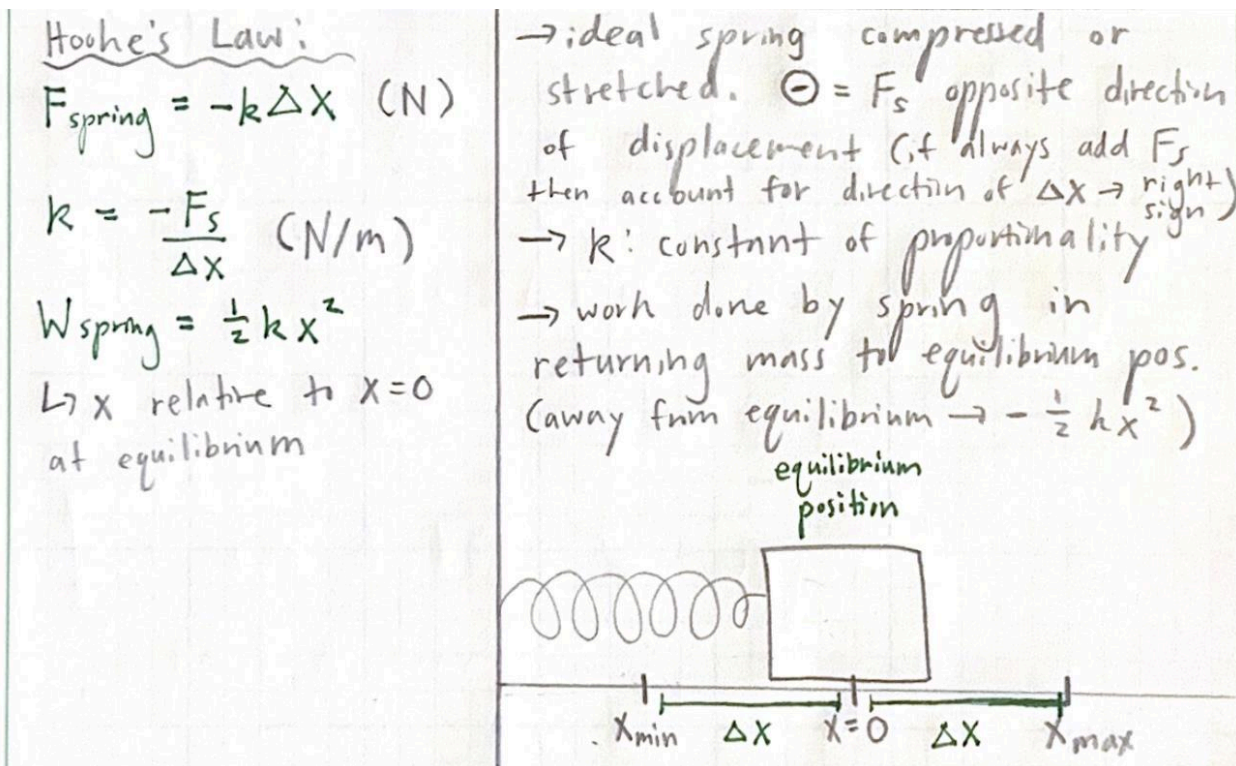 Hooke's Law:
F spring = -kΔX (N)
k = -Fs/ΔX (N/m)
W spring = ½ k x²
↳ x relative to x=0
at equilibrium
→ ideal spring compressed or
stretched. ⊖ = Fs opposite direction
of displacement (if always add Fs
then account for direction of ΔX → right sign)
→ k: constant of proportionality
→ work done by spring in
returning mass to equilibrium pos.
(away from equilibrium → - ½ k x²)
equilibrium
position
Xmin ΔX X=0 ΔX Xmax